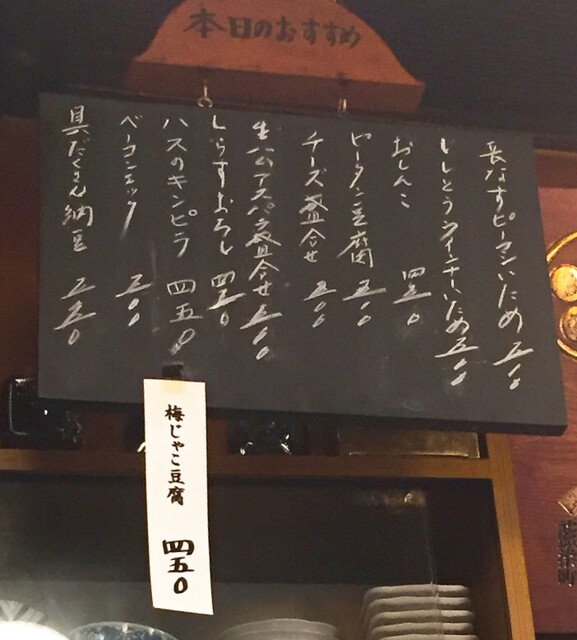 本日のおすすめ
長なすピーマンいため 五〇〇
ししとうウインナーいため 五〇〇
おしんこ 四五〇
ピータン豆腐 五〇〇
チーズ盛合せ 五〇〇
生ハムアスパラ盛合せ 五〇〇
しらすおろし 四五〇
ハスのキンピラ 四五〇
ベーコンエッグ 五〇〇
具だくさん納豆 五五〇
梅じゃこ豆腐 四五〇